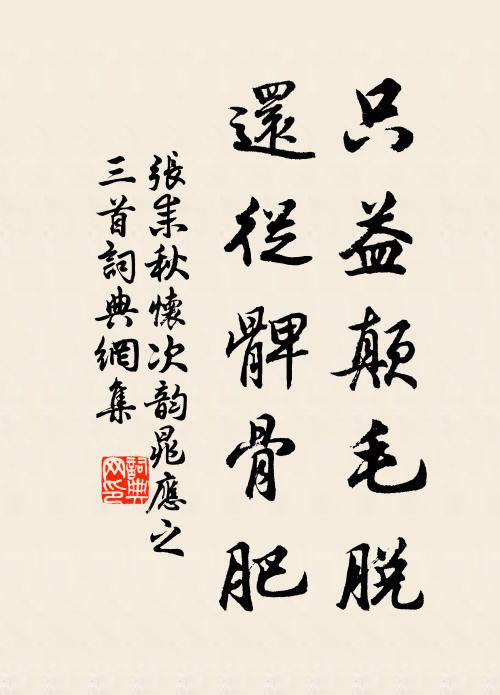 只益颠毛脱
還從髀骨肥
張耒秋懷次韵晁應之
三首詞典網集
詞典
网印